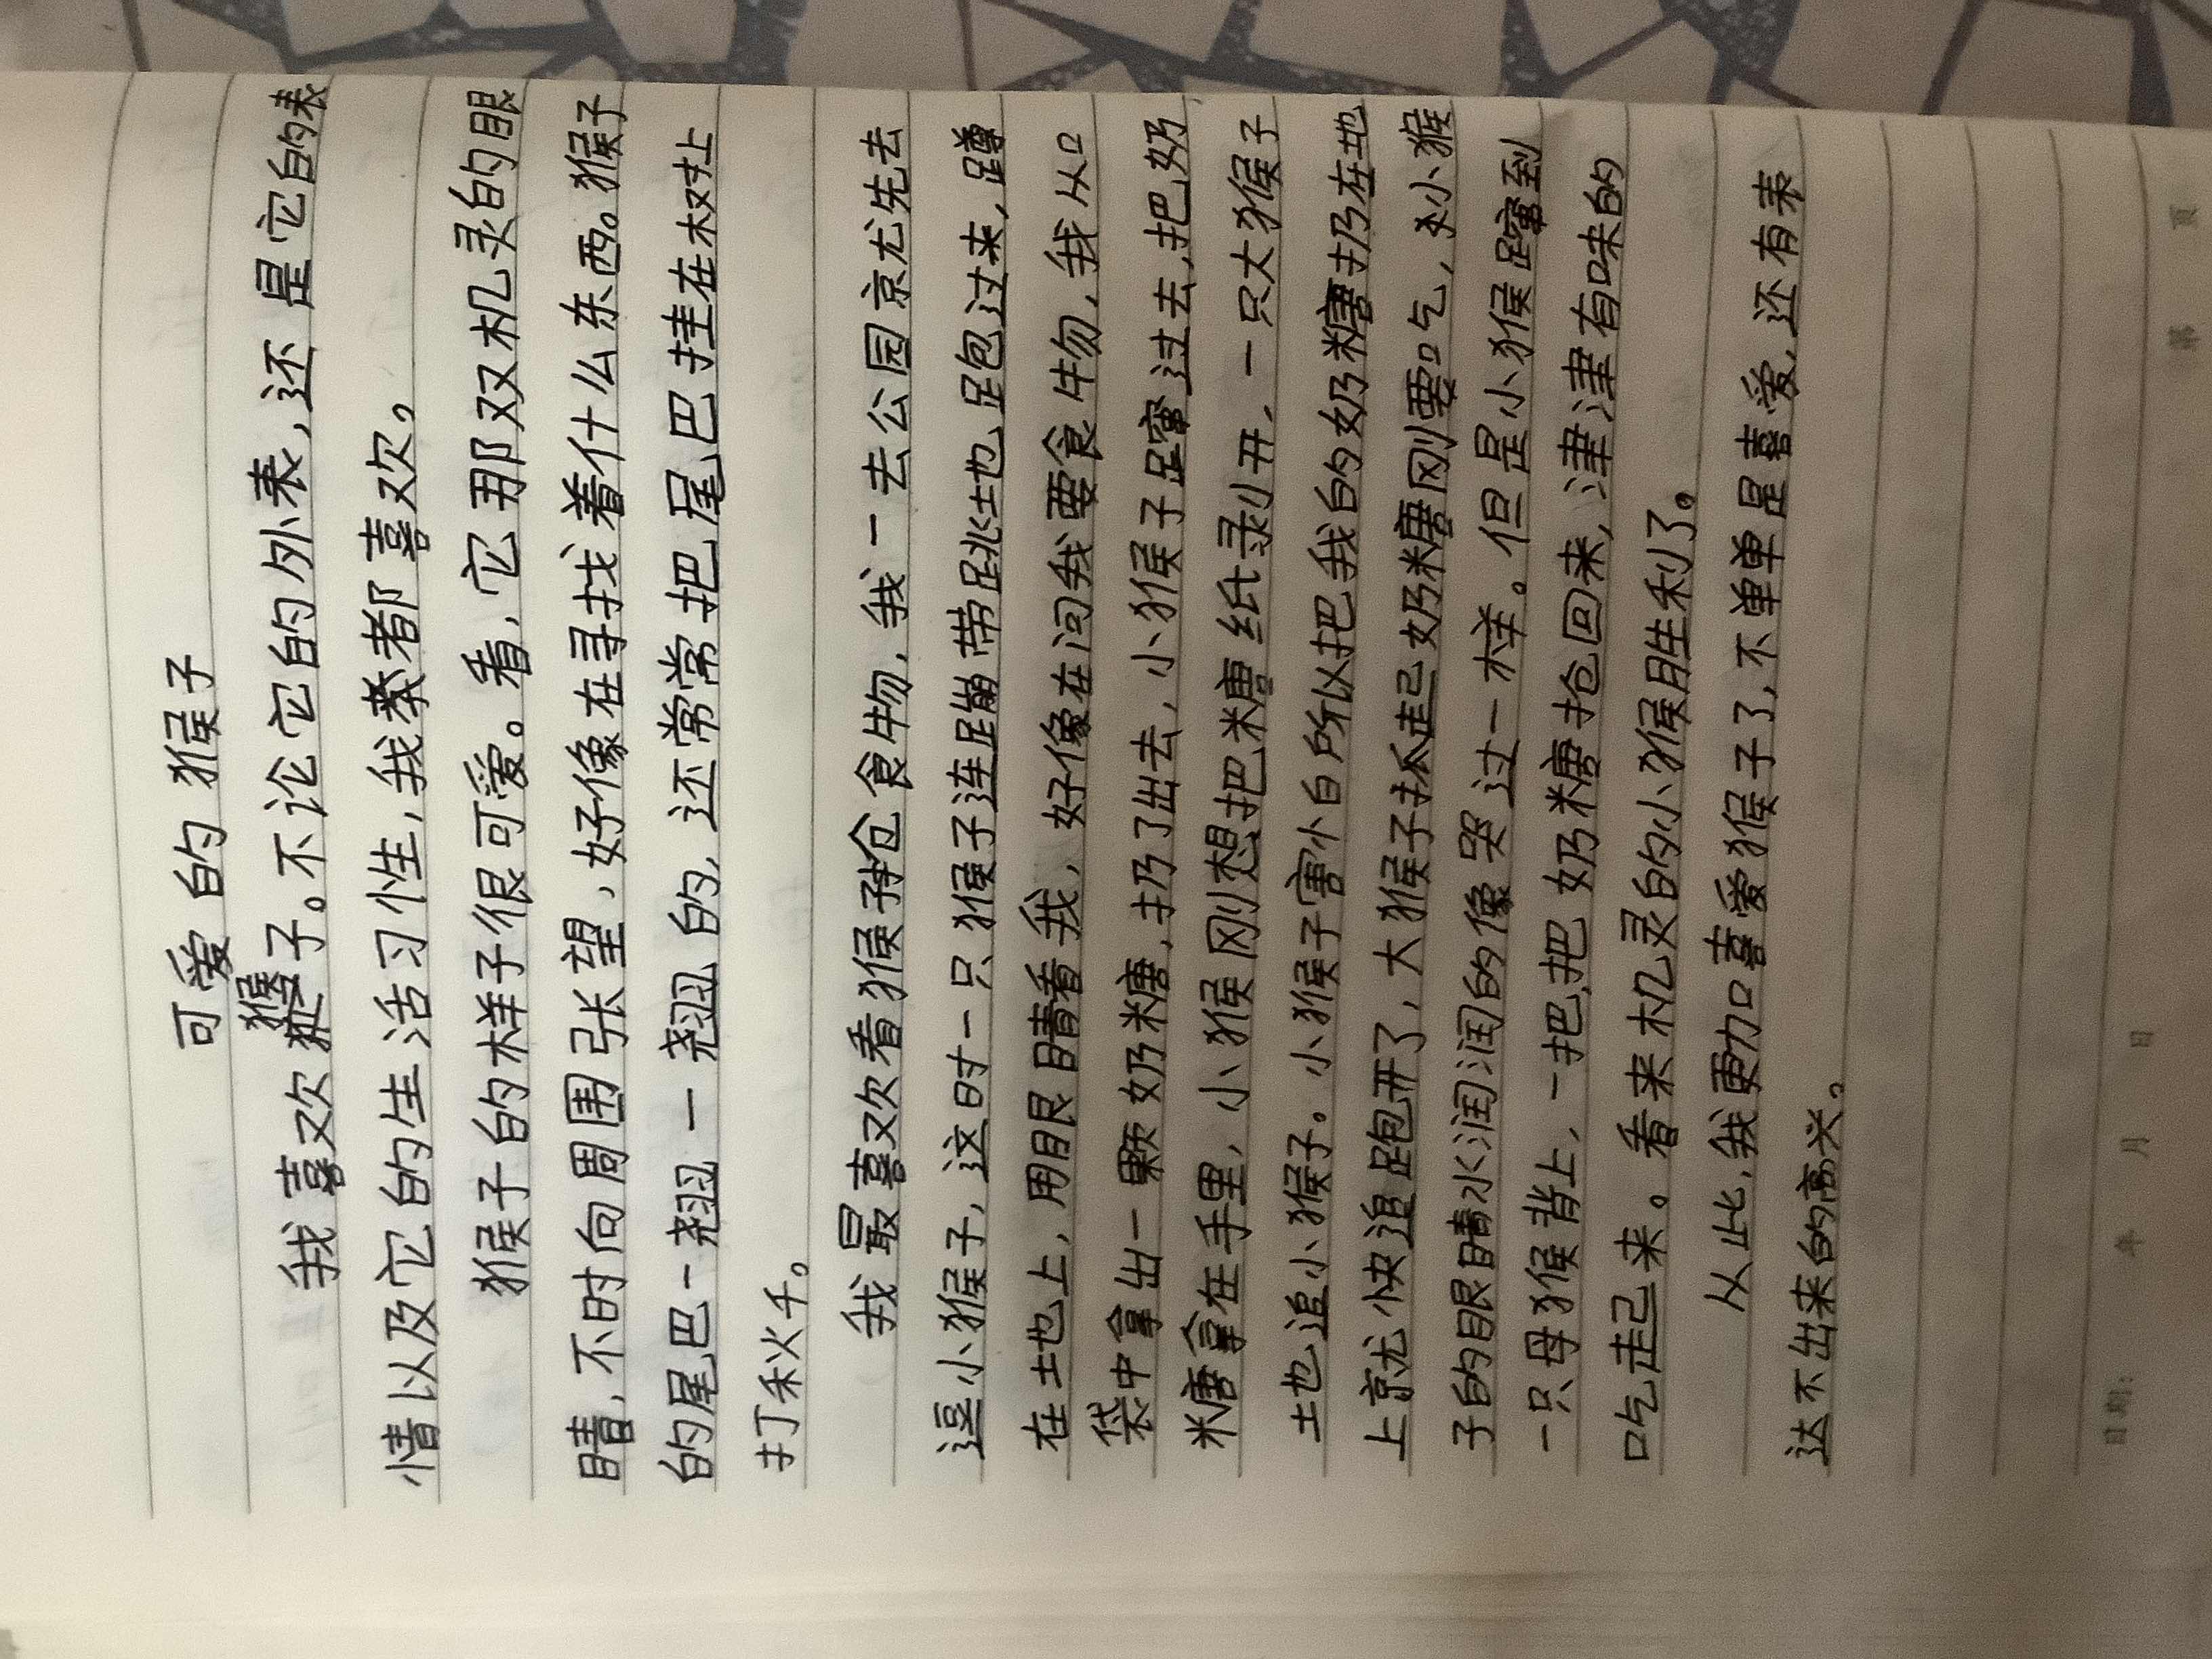 可爱的猴子
我喜欢猴子。不论它的外表,还是它的表
情以及它的生活习性,我都喜欢。
猴子的样子很可爱。看,它那双机灵的眼
睛,不时向周围张望,好像在寻找着什么东西。猴子
的尾巴一翘一翘的,还常常把尾巴挂在树上
打秋千。
我最喜欢看猴子抢食物,我一去公园就先去
逗小猴子,这时一只猴子连蹦带跳地跑过来,蹲
在地上,用眼睛看我,好像在问我要食物,我从口
袋中拿出一颗奶糖,扔了出去,小猴子蹿过去,把奶
糖拿在手里,小猴刚想把糖纸剥开,一只大猴子
也追小猴子。小猴子害怕所以把我的奶糖扔在地
上就快追跑开了,大猴子抓起奶糖刚要吃,小猴
子的眼睛水润润的像哭过一样。但是小猴蹿到
一只母猴背上,一把把奶糖抢回来,津津有味的
吃起来。看来机灵的小猴胜利了。
从此,我更加喜爱猴子了,不单单是喜爱,还有表
达不出来的高兴。
第 页
日期: 年 月 日